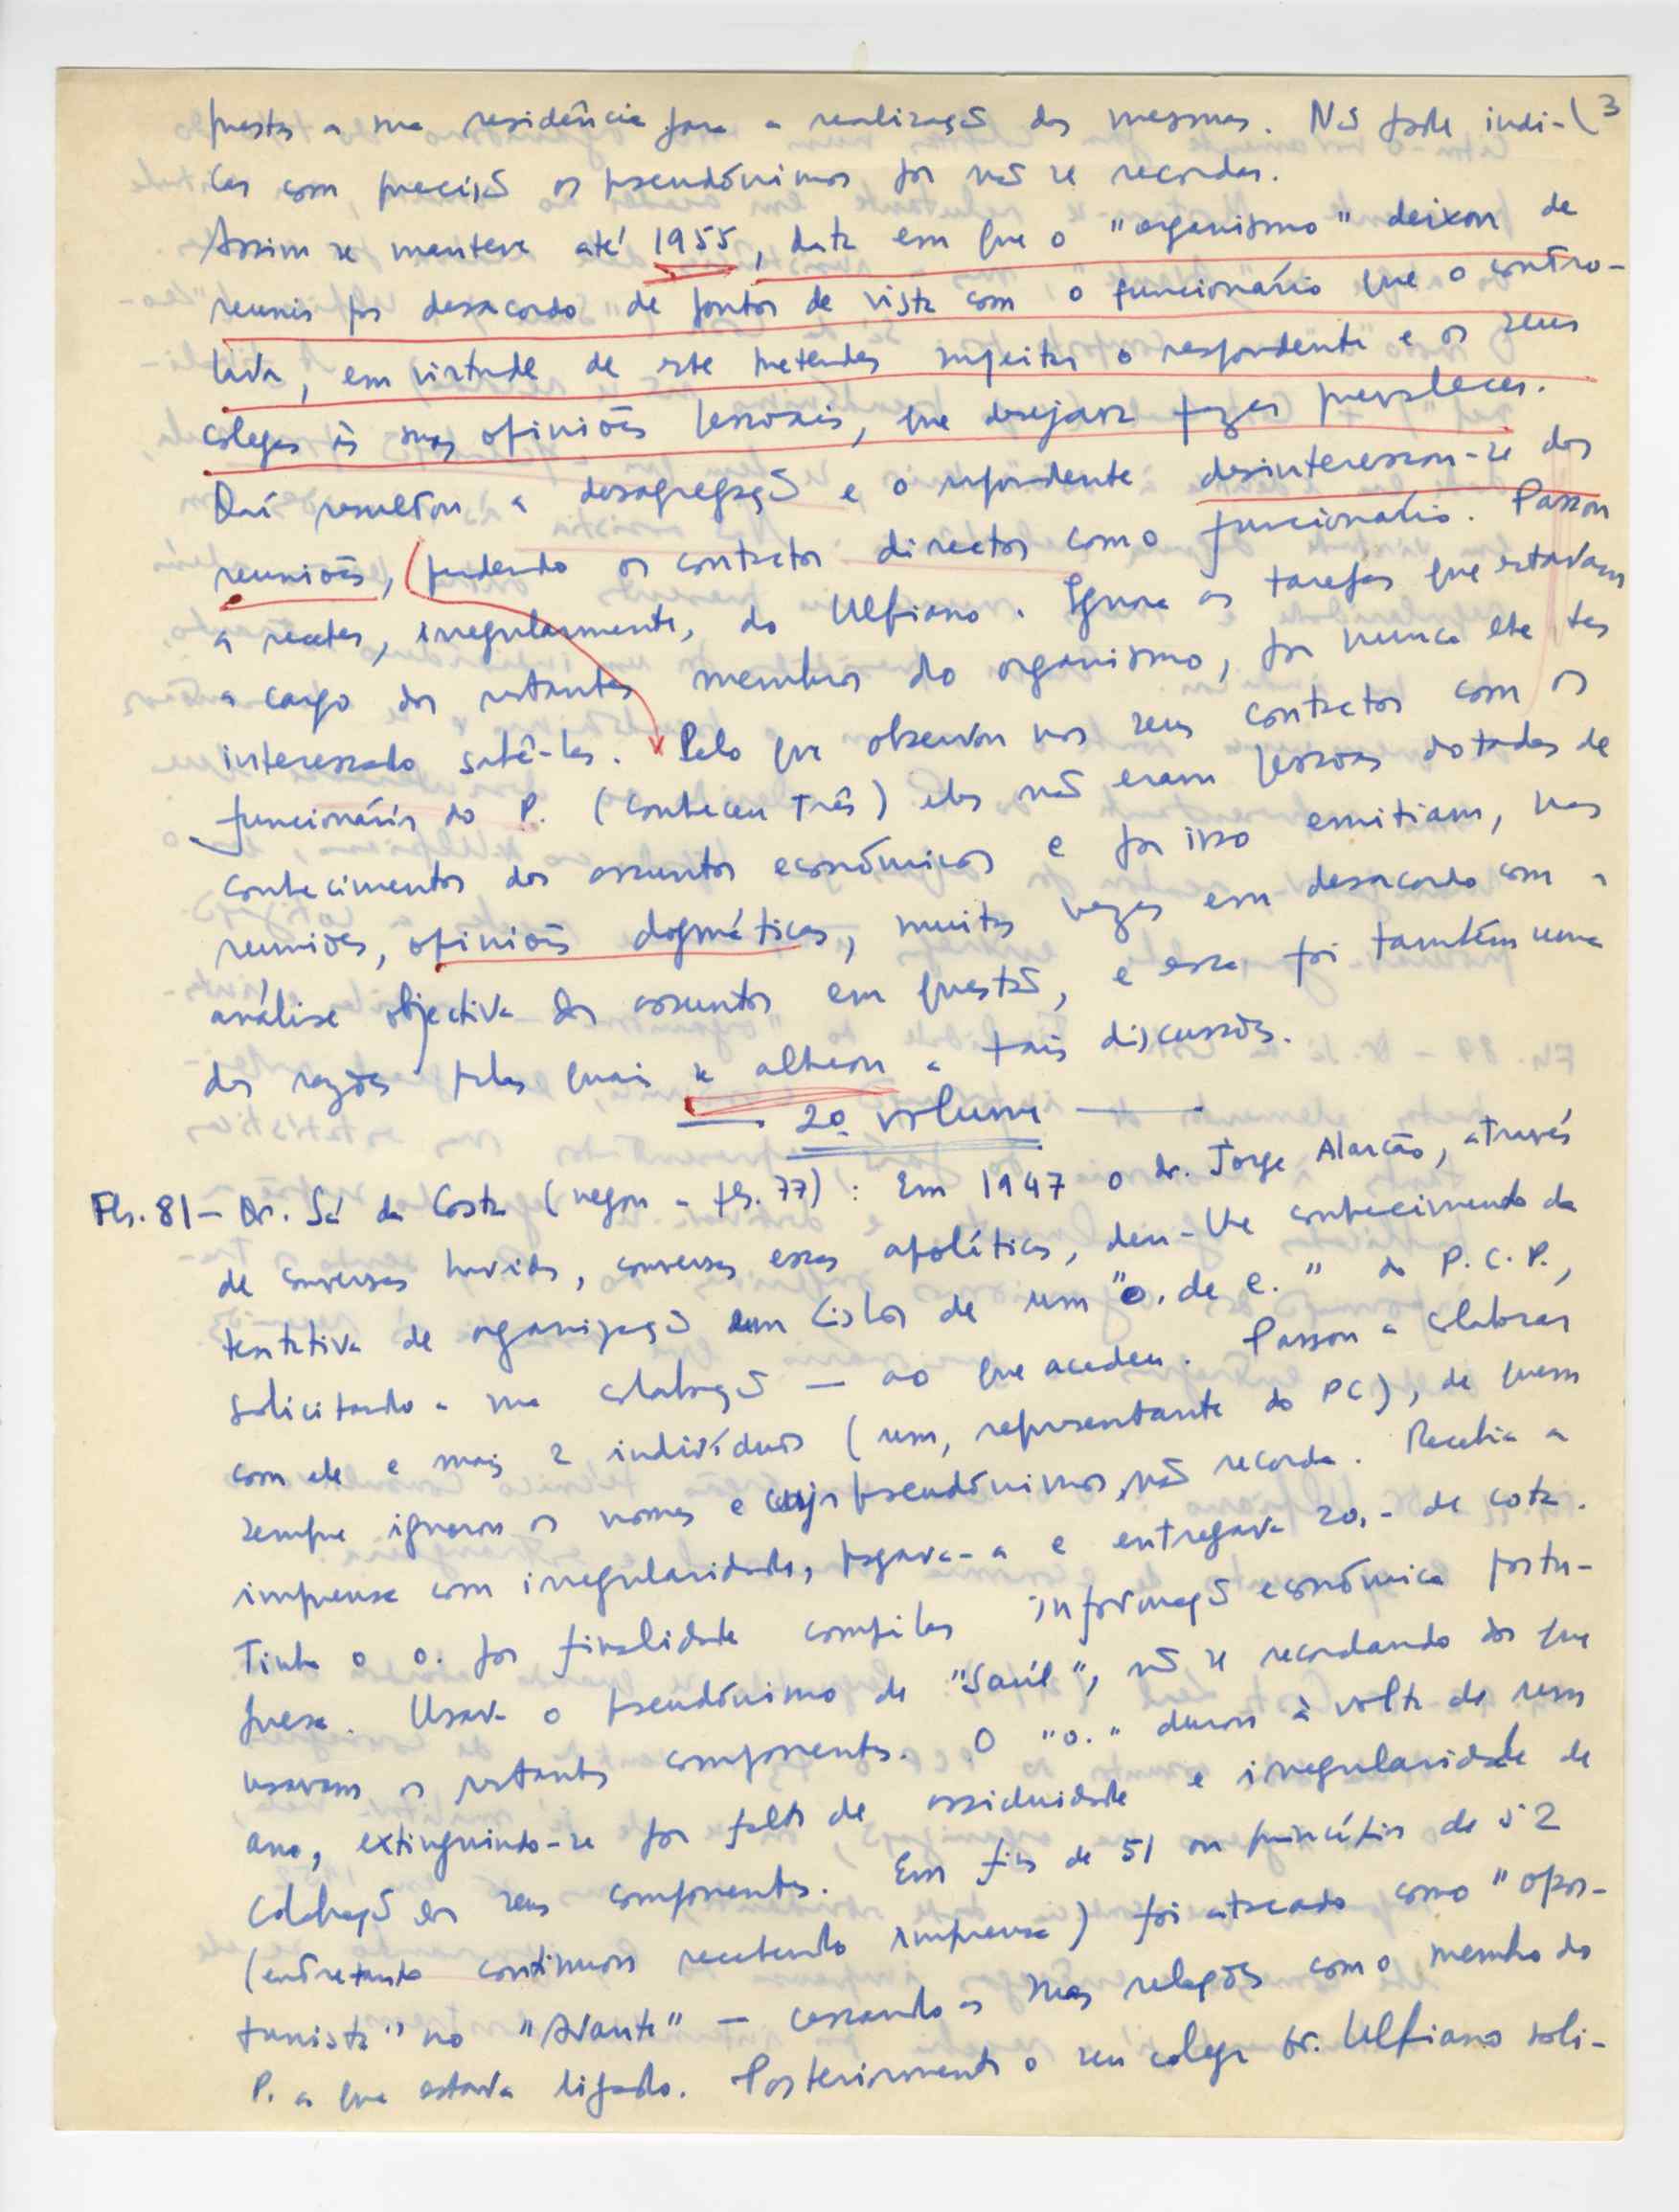 prestou a sua residência para a realização das mesmas. Não pode indi- (3
car com precisão os pseudónimos por não se recordar.
Assim se manteve até 1955, data em que o "organismo" deixou de
reunir por desacordo de pontos de vista com o funcionário que o contro-
lava, em virtude de este pretender sujeitar o respondente e os seus
colegas às suas opiniões pessoais, que desejava fazer prevalecer.
Daí resultou a desagregação e o respondente desinteressou-se das
reuniões, perdendo os contactos directos com o funcionário. Passou
a receber, irregularmente, do Ulpiano. Ignora as tarefas que estavam
a cargo dos restantes membros do organismo, por nunca lhe ter
interessado sabê-las. Pelo que observou nos seus contactos com os
funcionários do P. (conheceu três) eles não eram pessoas dotadas de
conhecimentos dos assuntos económicos e por isso emitiam, nas
reuniões, opiniões dogmáticas, muitas vezes em desacordo com a
análise objectiva dos assuntos em questão, e essa foi também uma
das razões pelas quais se alheou a tais discussões.
— 2º volume —
Fls. 81 — Dr. Sá da Costa (negou a fls. 77): Em 1947 o dr. Jorge Alarcão, através
de conversas havidas, conversas essas apolíticas, deu-lhe conhecimento da
tentativa de organização em Lisboa de um "o. de e." do P.C.P.,
solicitando a sua colaboração — ao que acedeu. Passou a colaborar
com ele e mais 2 indivíduos (um, representante do PC), de quem
sempre ignorou os nomes e cujos pseudónimos não recorda. Recebia a
imprensa com irregularidade, pagava-a e entregava 20,- de cota.
Tinha o o. por finalidade compilar informação económica portu-
guesa. Usava o pseudónimo de "Saúl", não se recordando dos que
usavam os restantes componentes. O "o." durou à volta de um
ano, extinguindo-se por falta de assiduidade e irregularidade de
colaboração dos seus componentes. Em fins de 51 ou princípios de 52
(entretanto continuou recebendo imprensa) foi atacado como "opor-
tunista" no "Avante" — cessando as suas relações com o membro do
P. a que estava ligado. Posteriormente o seu colega Dr. Ulpiano soli-